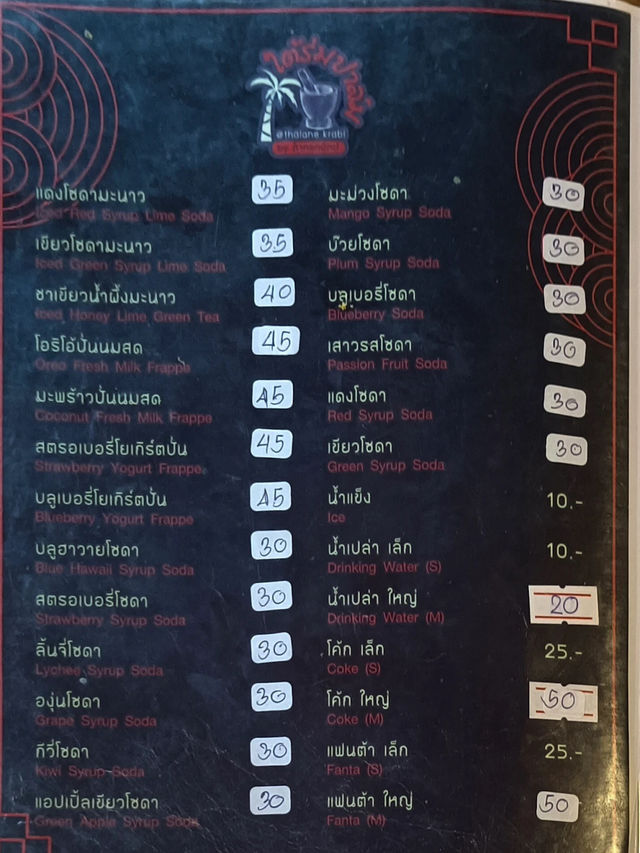 ใต้ร่มปาล์ม
@thalane krabi
แดงโซดามะนาว 35
Iced Red Syrup Lime Soda
เขียวโซดามะนาว 35
Iced Green Syrup Lime Soda
ชาเขียวน้ำผึ้งมะนาว 40
Iced Honey Lime Green Tea
โอริโอ้ปั่นนมสด 45
Oreo Fresh Milk Frappe
มะพร้าวปั่นนมสด 45
Coconut Fresh Milk Frappe
สตรอเบอรี่โยเกิร์ตปั่น 45
Strawberry Yogurt Frappe
บลูเบอรี่โยเกิร์ตปั่น 45
Blueberry Yogurt Frappe
บลูฮาวายโซดา 30
Blue Hawaii Syrup Soda
สตรอเบอรี่โซดา 30
Strawberry Syrup Soda
ลิ้นจี่โซดา 30
Lychee Syrup Soda
องุ่นโซดา 30
Grape Syrup Soda
กีวี่โซดา 30
Kiwi Syrup Soda
แอปเปิ้ลเขียวโซดา 30
Green Apple Syrup Soda
มะม่วงโซดา 30
Mango Syrup Soda
บ๊วยโซดา 30
Plum Syrup Soda
บลูเบอรี่โซดา 30
Blueberry Soda
เสาวรสโซดา 30
Passion Fruit Soda
แดงโซดา 30
Red Syrup Soda
เขียวโซดา 30
Green Syrup Soda
น้ำแข็ง 10.-
Ice
น้ำเปล่า เล็ก 10.-
Drinking Water (S)
น้ำเปล่า ใหญ่ 20
Drinking Water (M)
โค้ก เล็ก 25.-
Coke (S)
โค้ก ใหญ่ 50
Coke (M)
แฟนต้า เล็ก 25.-
Fanta (S)
แฟนต้า ใหญ่ 50
Fanta (M)